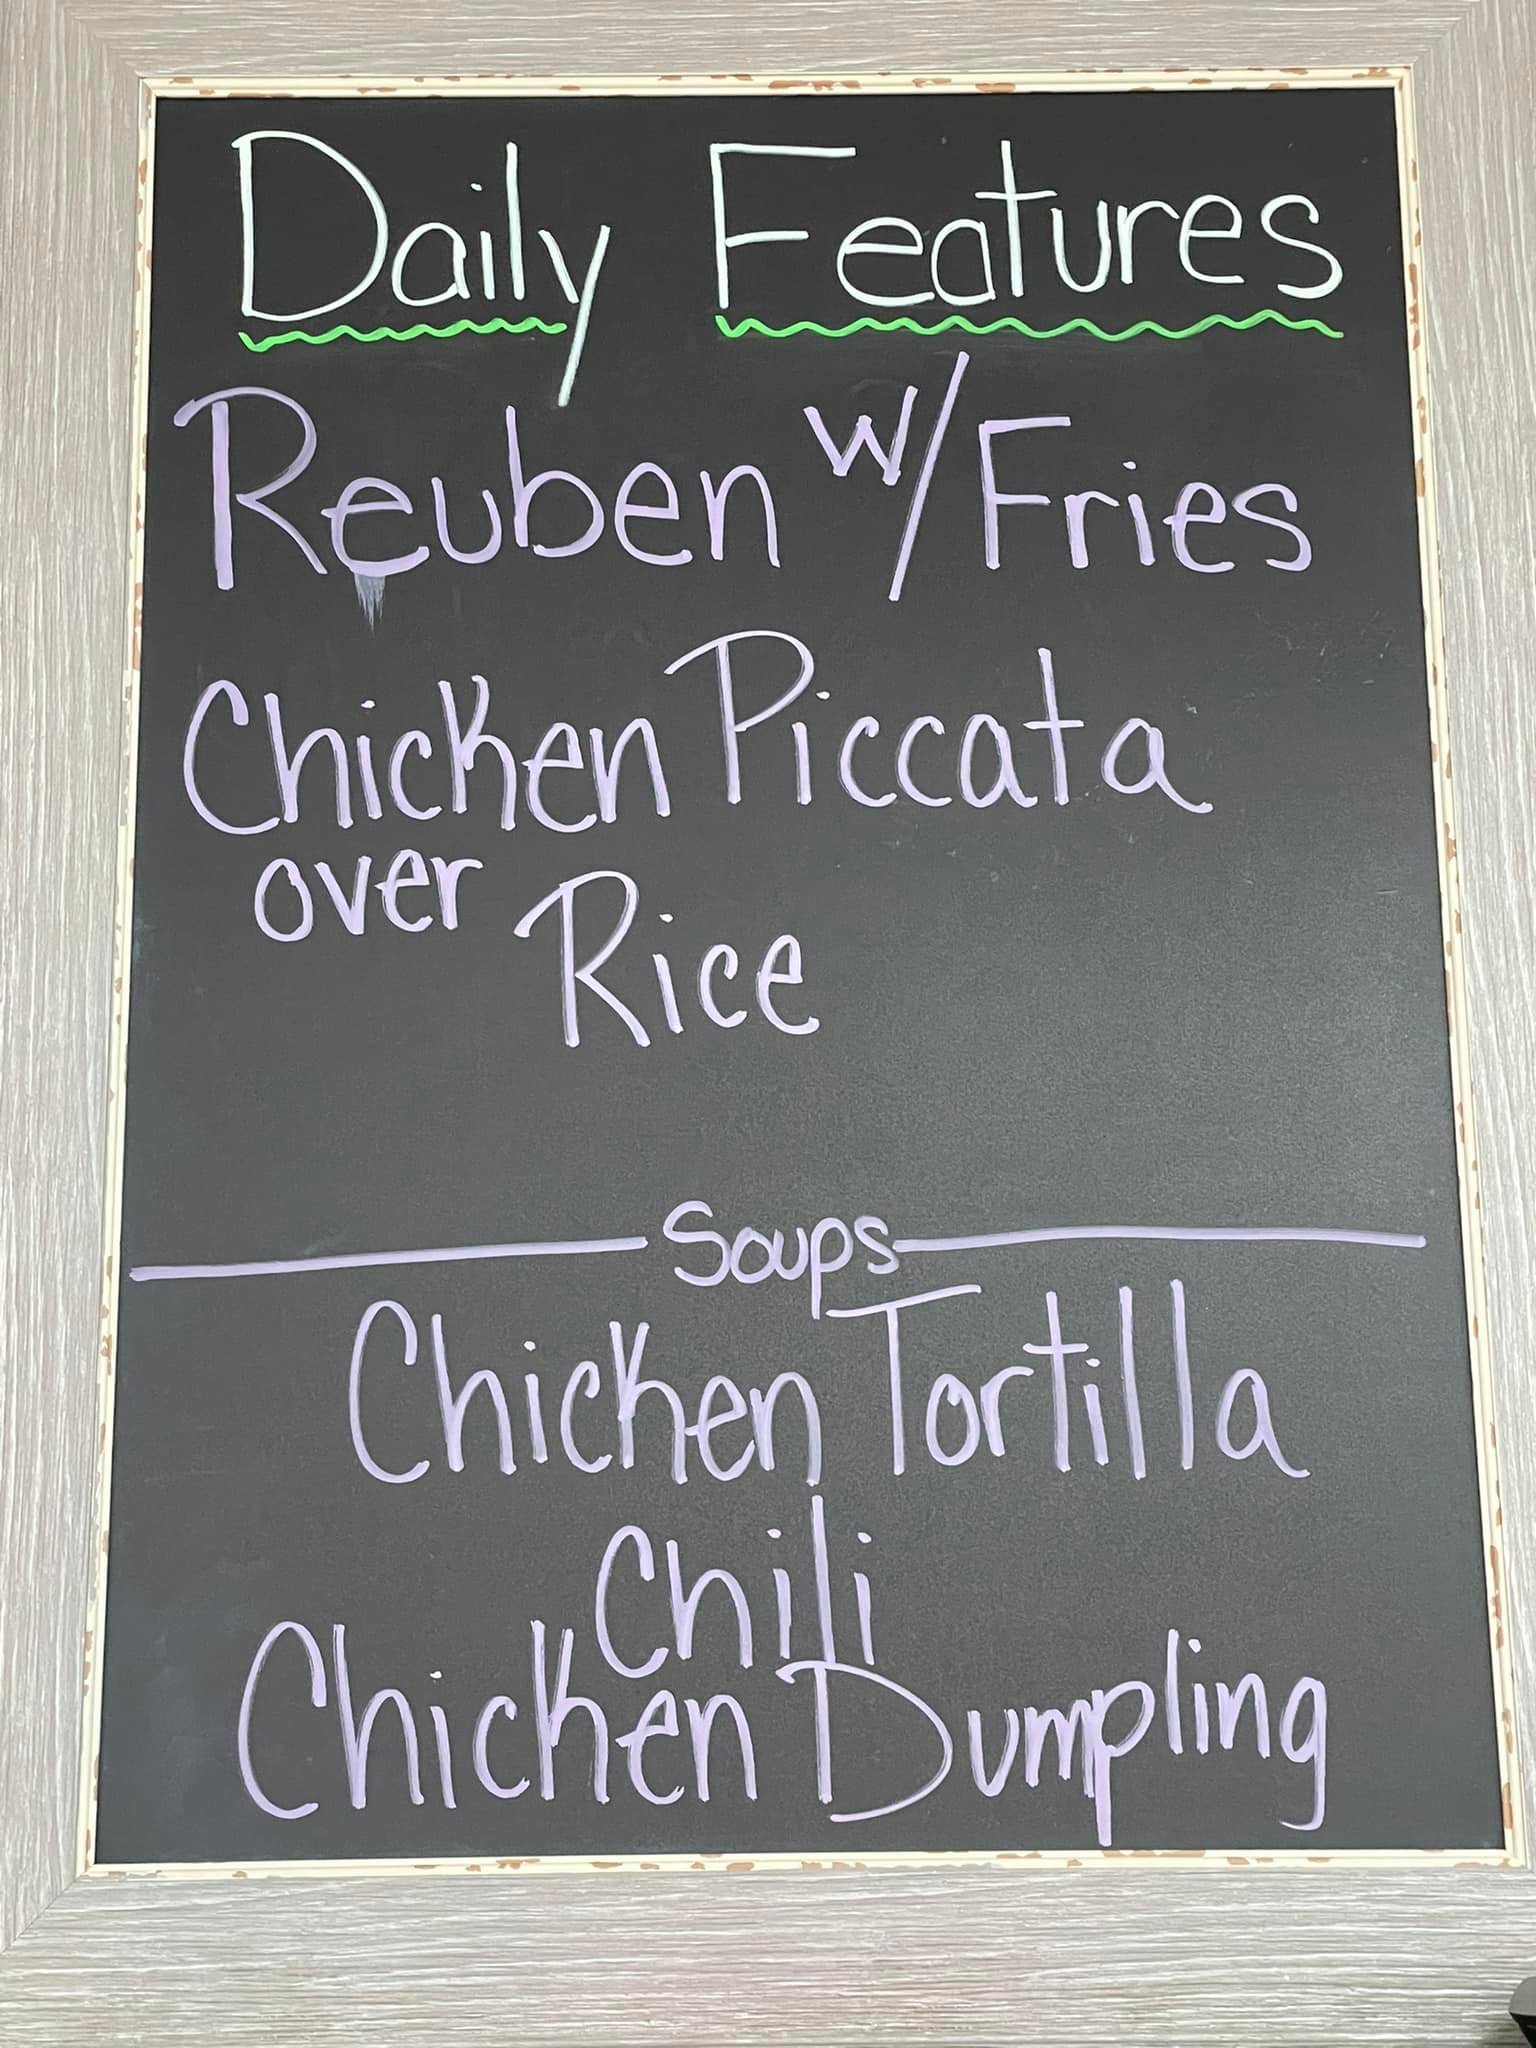 Daily Features
Reuben w/Fries
Chicken Piccata
over Rice
Soups
Chicken Tortilla
Chili
Chicken Dumpling